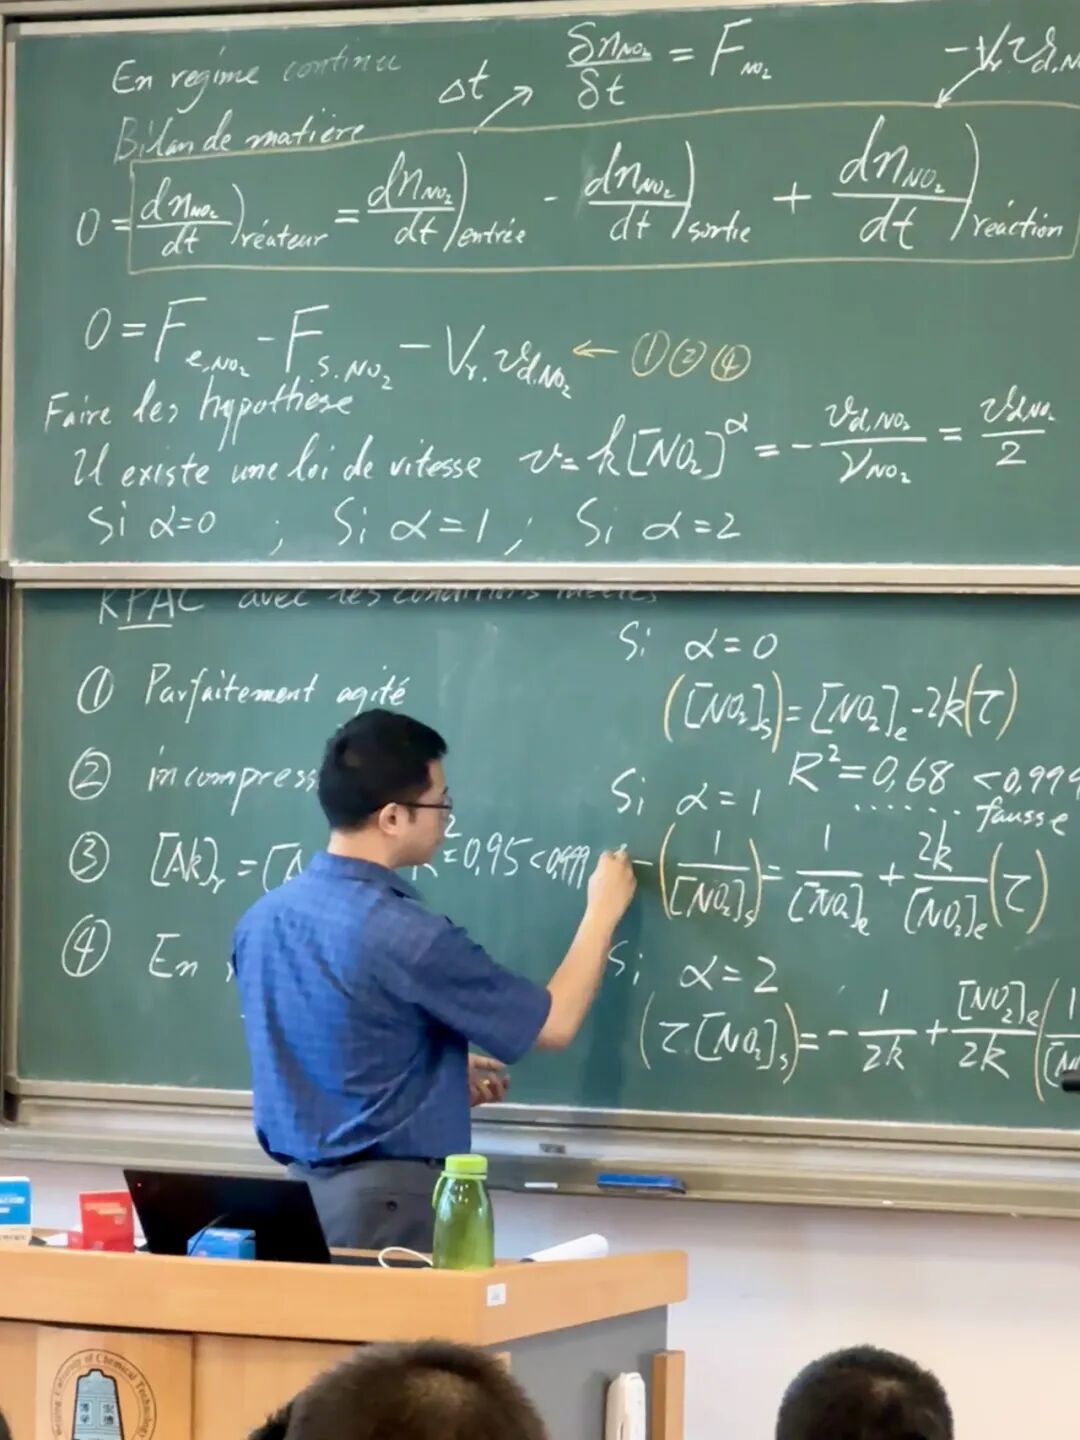 En régime continu
Δt
δn_NO₂/δt = F_NO₂
-Vr v_d,N
Bilan de matière
0 = dn_NO₂/dt)réateur = dn_NO₂/dt)entrée - dn_NO₂/dt)sortie + dn_NO₂/dt)réaction
0 = F_e,NO₂ - F_s.NO₂ - Vr. v_d,NO₂ ← ① ② ④
Faire les hypothèse
Il existe une loi de vitesse v = k[NO₂]^α = - v_d,NO₂/ν_NO₂ = v_d,NO₂/2
Si α=0 ; Si α=1 ; Si α=2
RPAC avec les conditions
① Parfaitement agité
② incompress
③ [Ak]r = [A
²=0,95<0,999
④ En r
Si α=0
([NO₂]s) = [NO₂]e - 2k(τ)
R²=0,68 <0,999
fausse
Si α=1
(1/[NO₂]s) = 1/[NO₂]e + 2k/[NO₂]e (τ)
Si α=2
(τ[NO₂]s) = - 1/2k + [NO₂]e/2k (1/[N
University of Chemical Technology